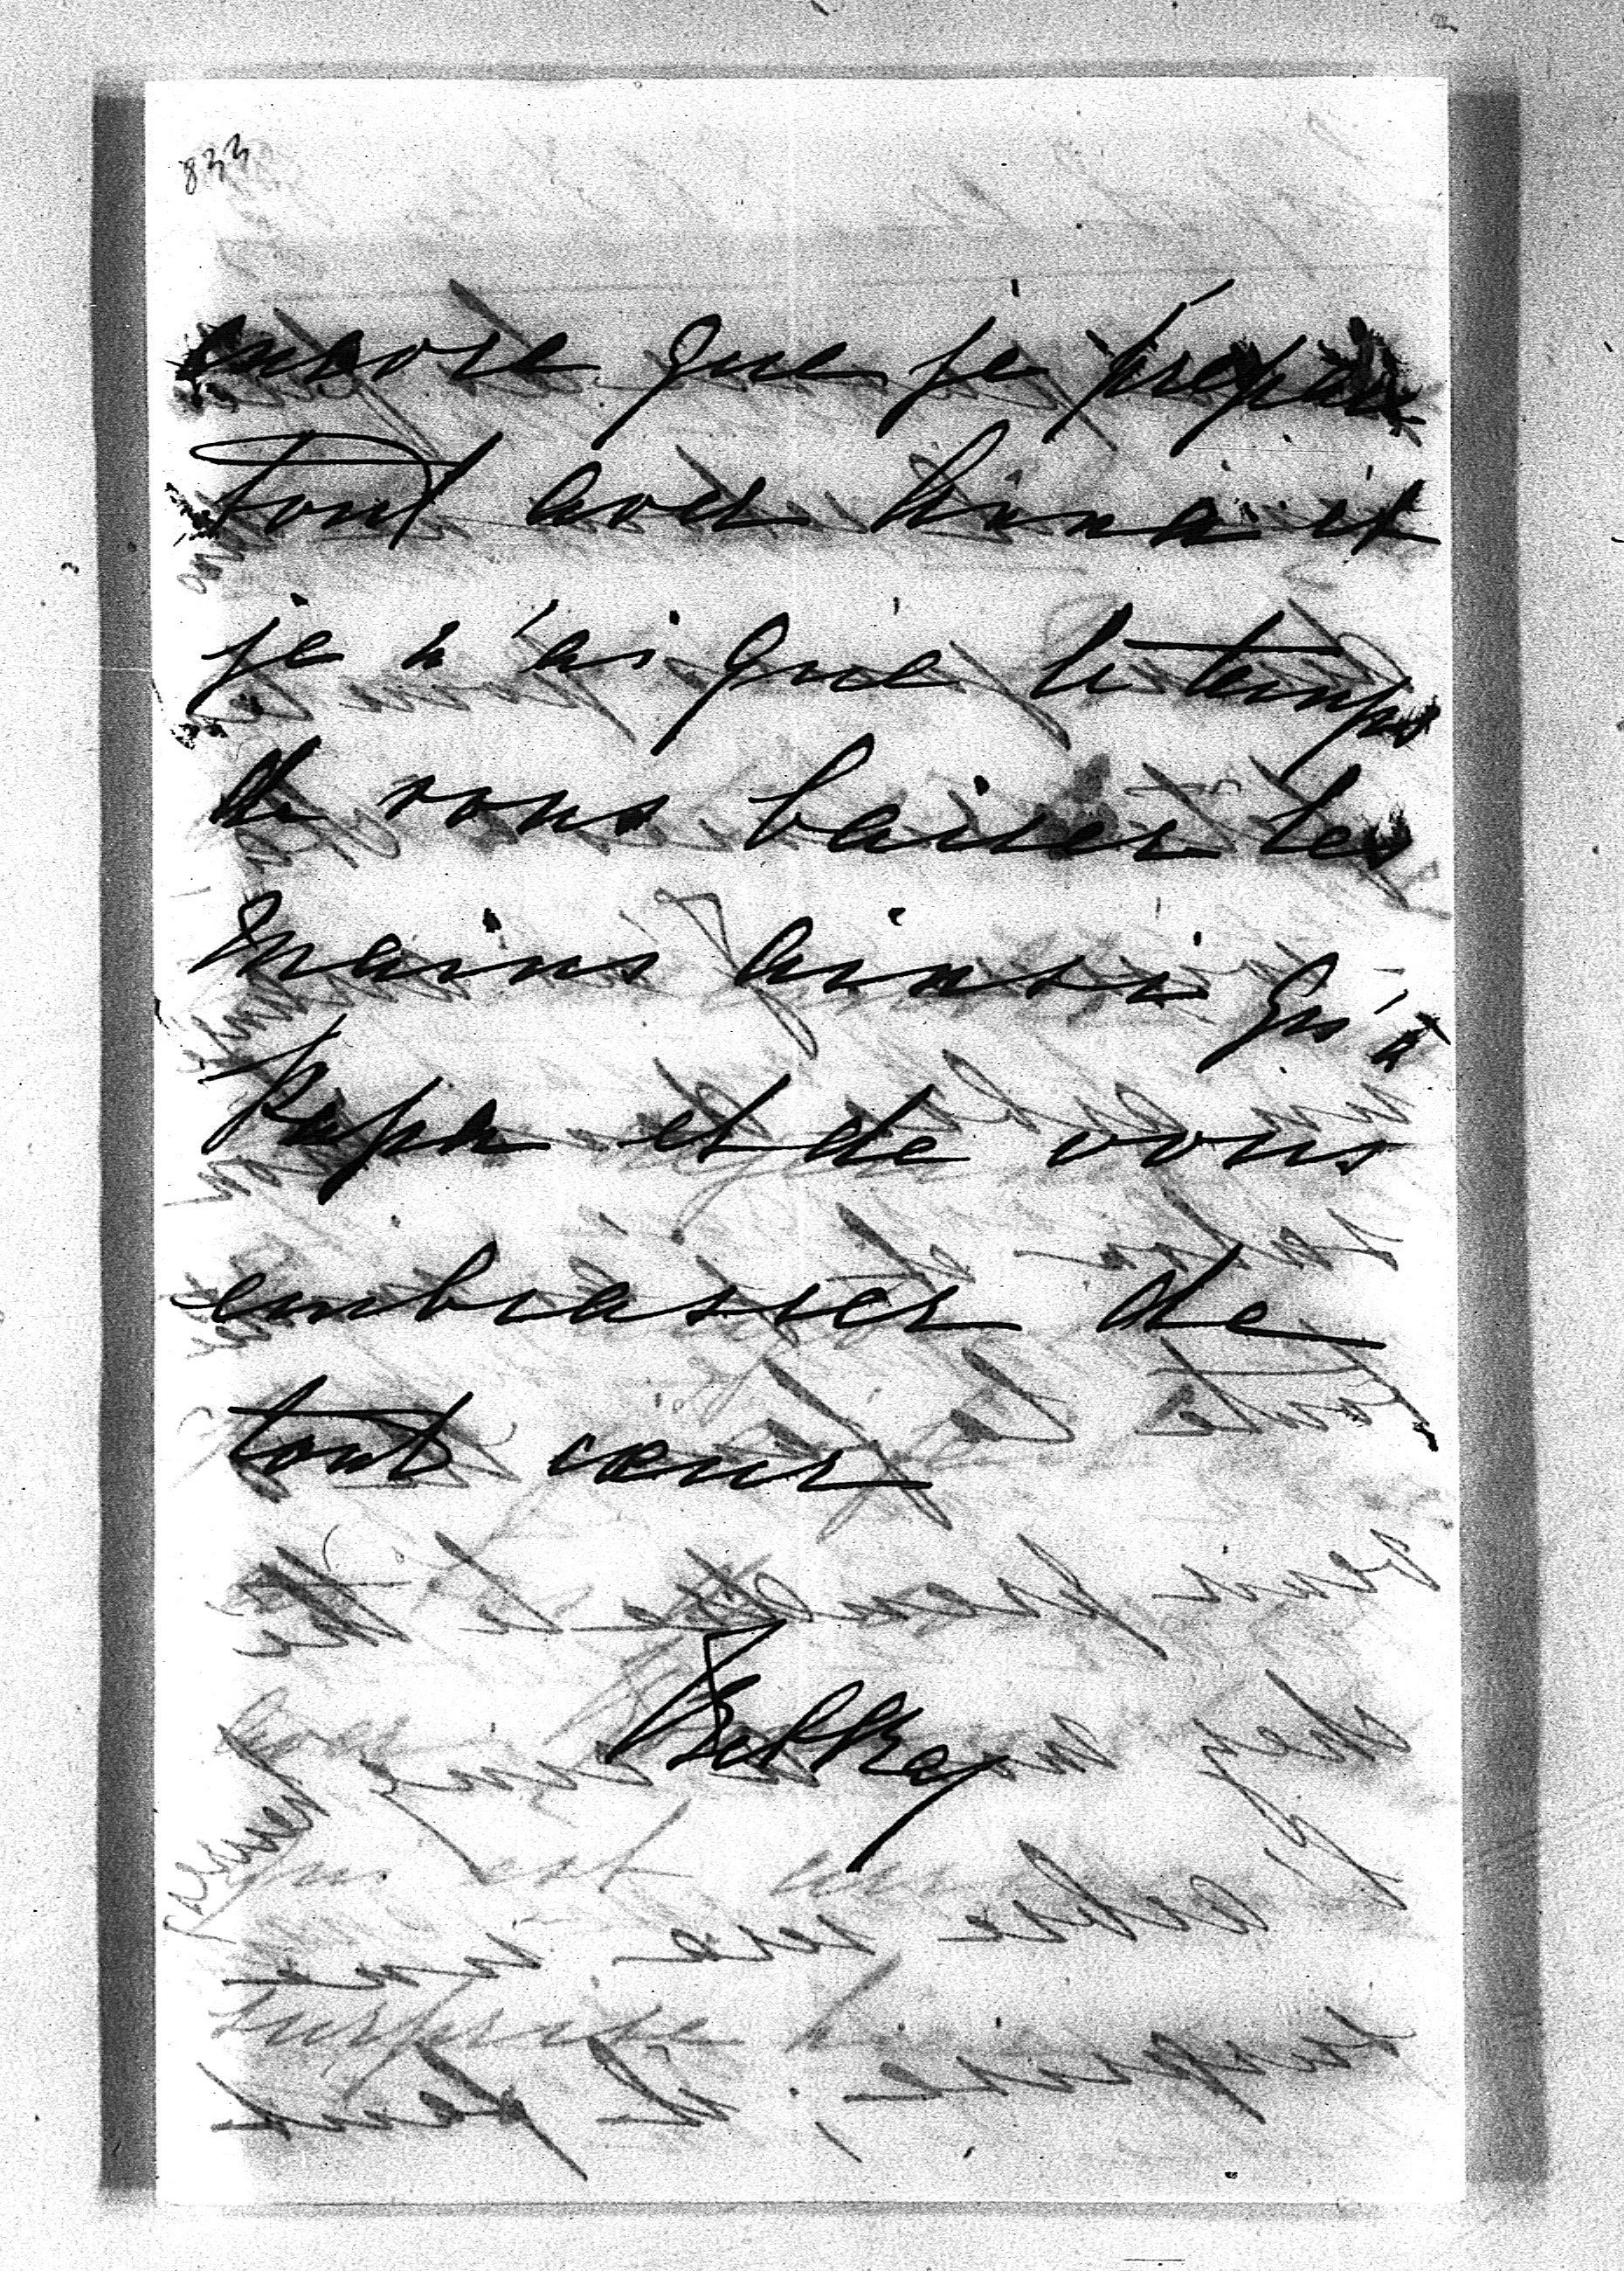 833
encore que je prepare
tout avec Anna et
je n'ai que le temps
de vous baiser les
mains ainsi qu'à
Papa et de vous
embrasser de
tout cœur